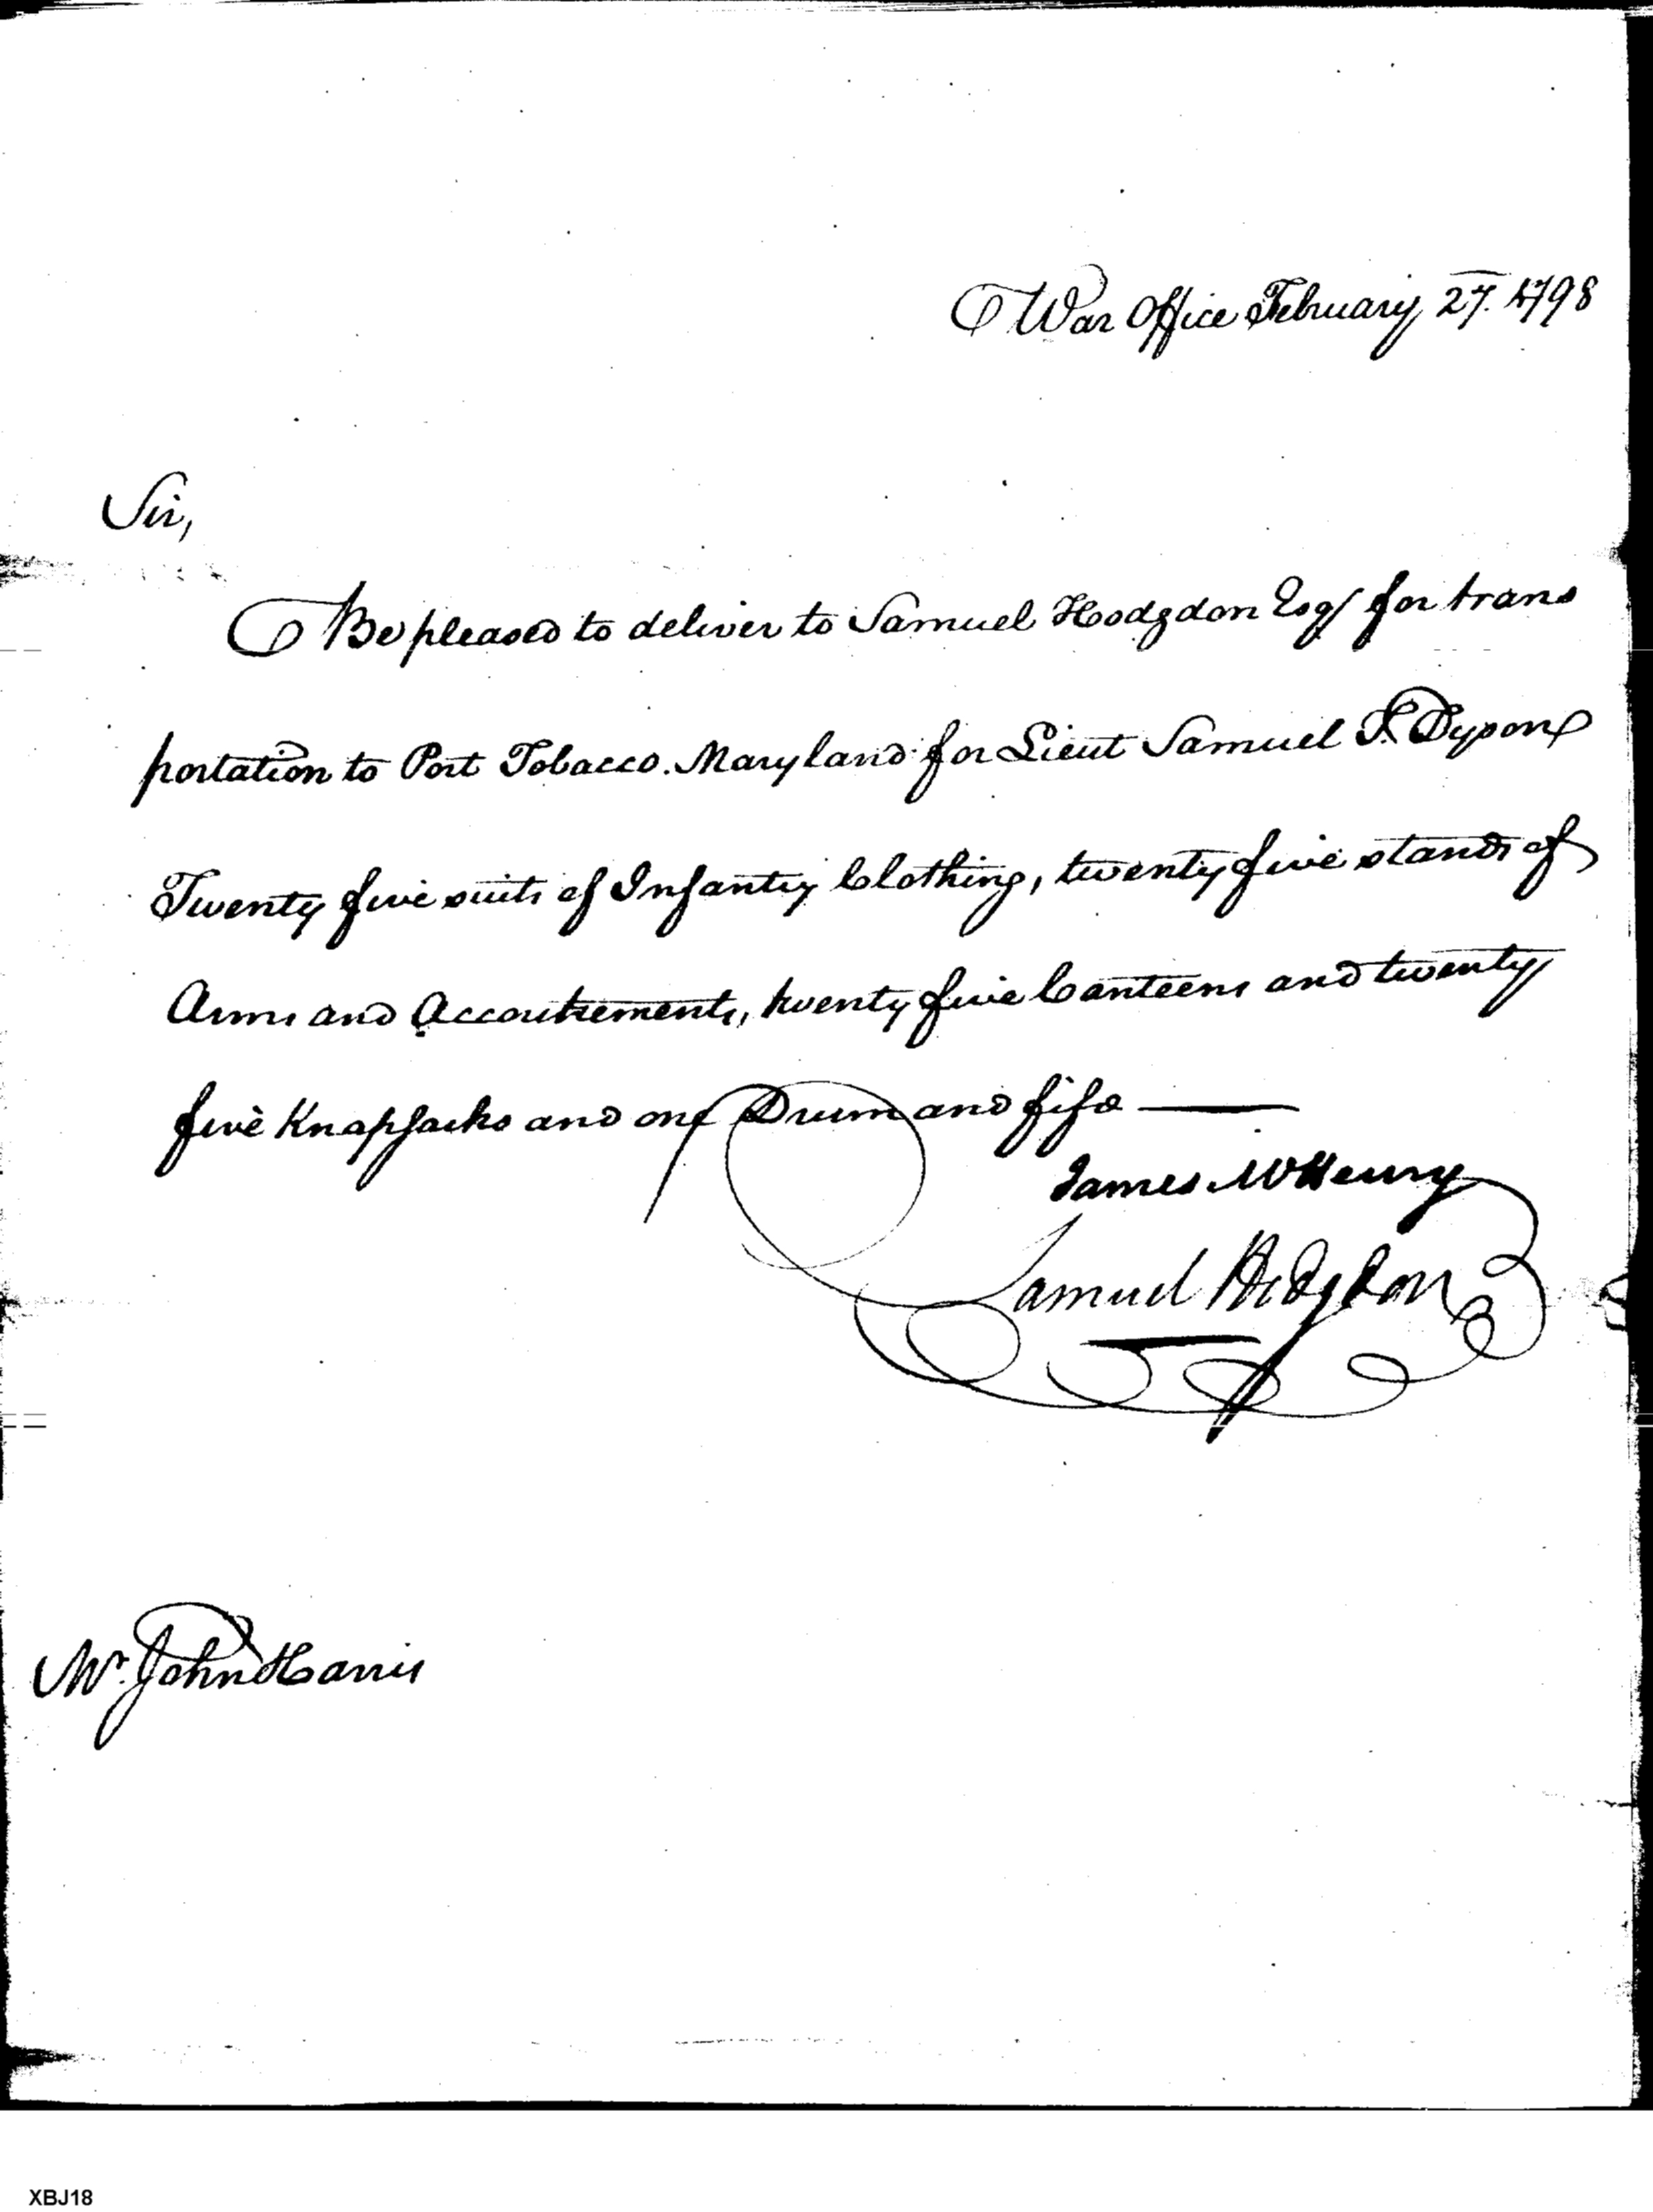 War Office February 27. 1798
Sir,
Be pleased to deliver to Samuel Hodgdon Esqr for trans
portation to Port Tobacco. Maryland for Lieut Samuel T. Dyson
Twenty five suits of Infantry Clothing, twenty five stands of
Arms and Accoutrements, twenty five Canteens and twenty
five Knapsacks and one Drum and fife
James McHenry
Samuel Hodgdon
Mr. John Harris
XBJ18